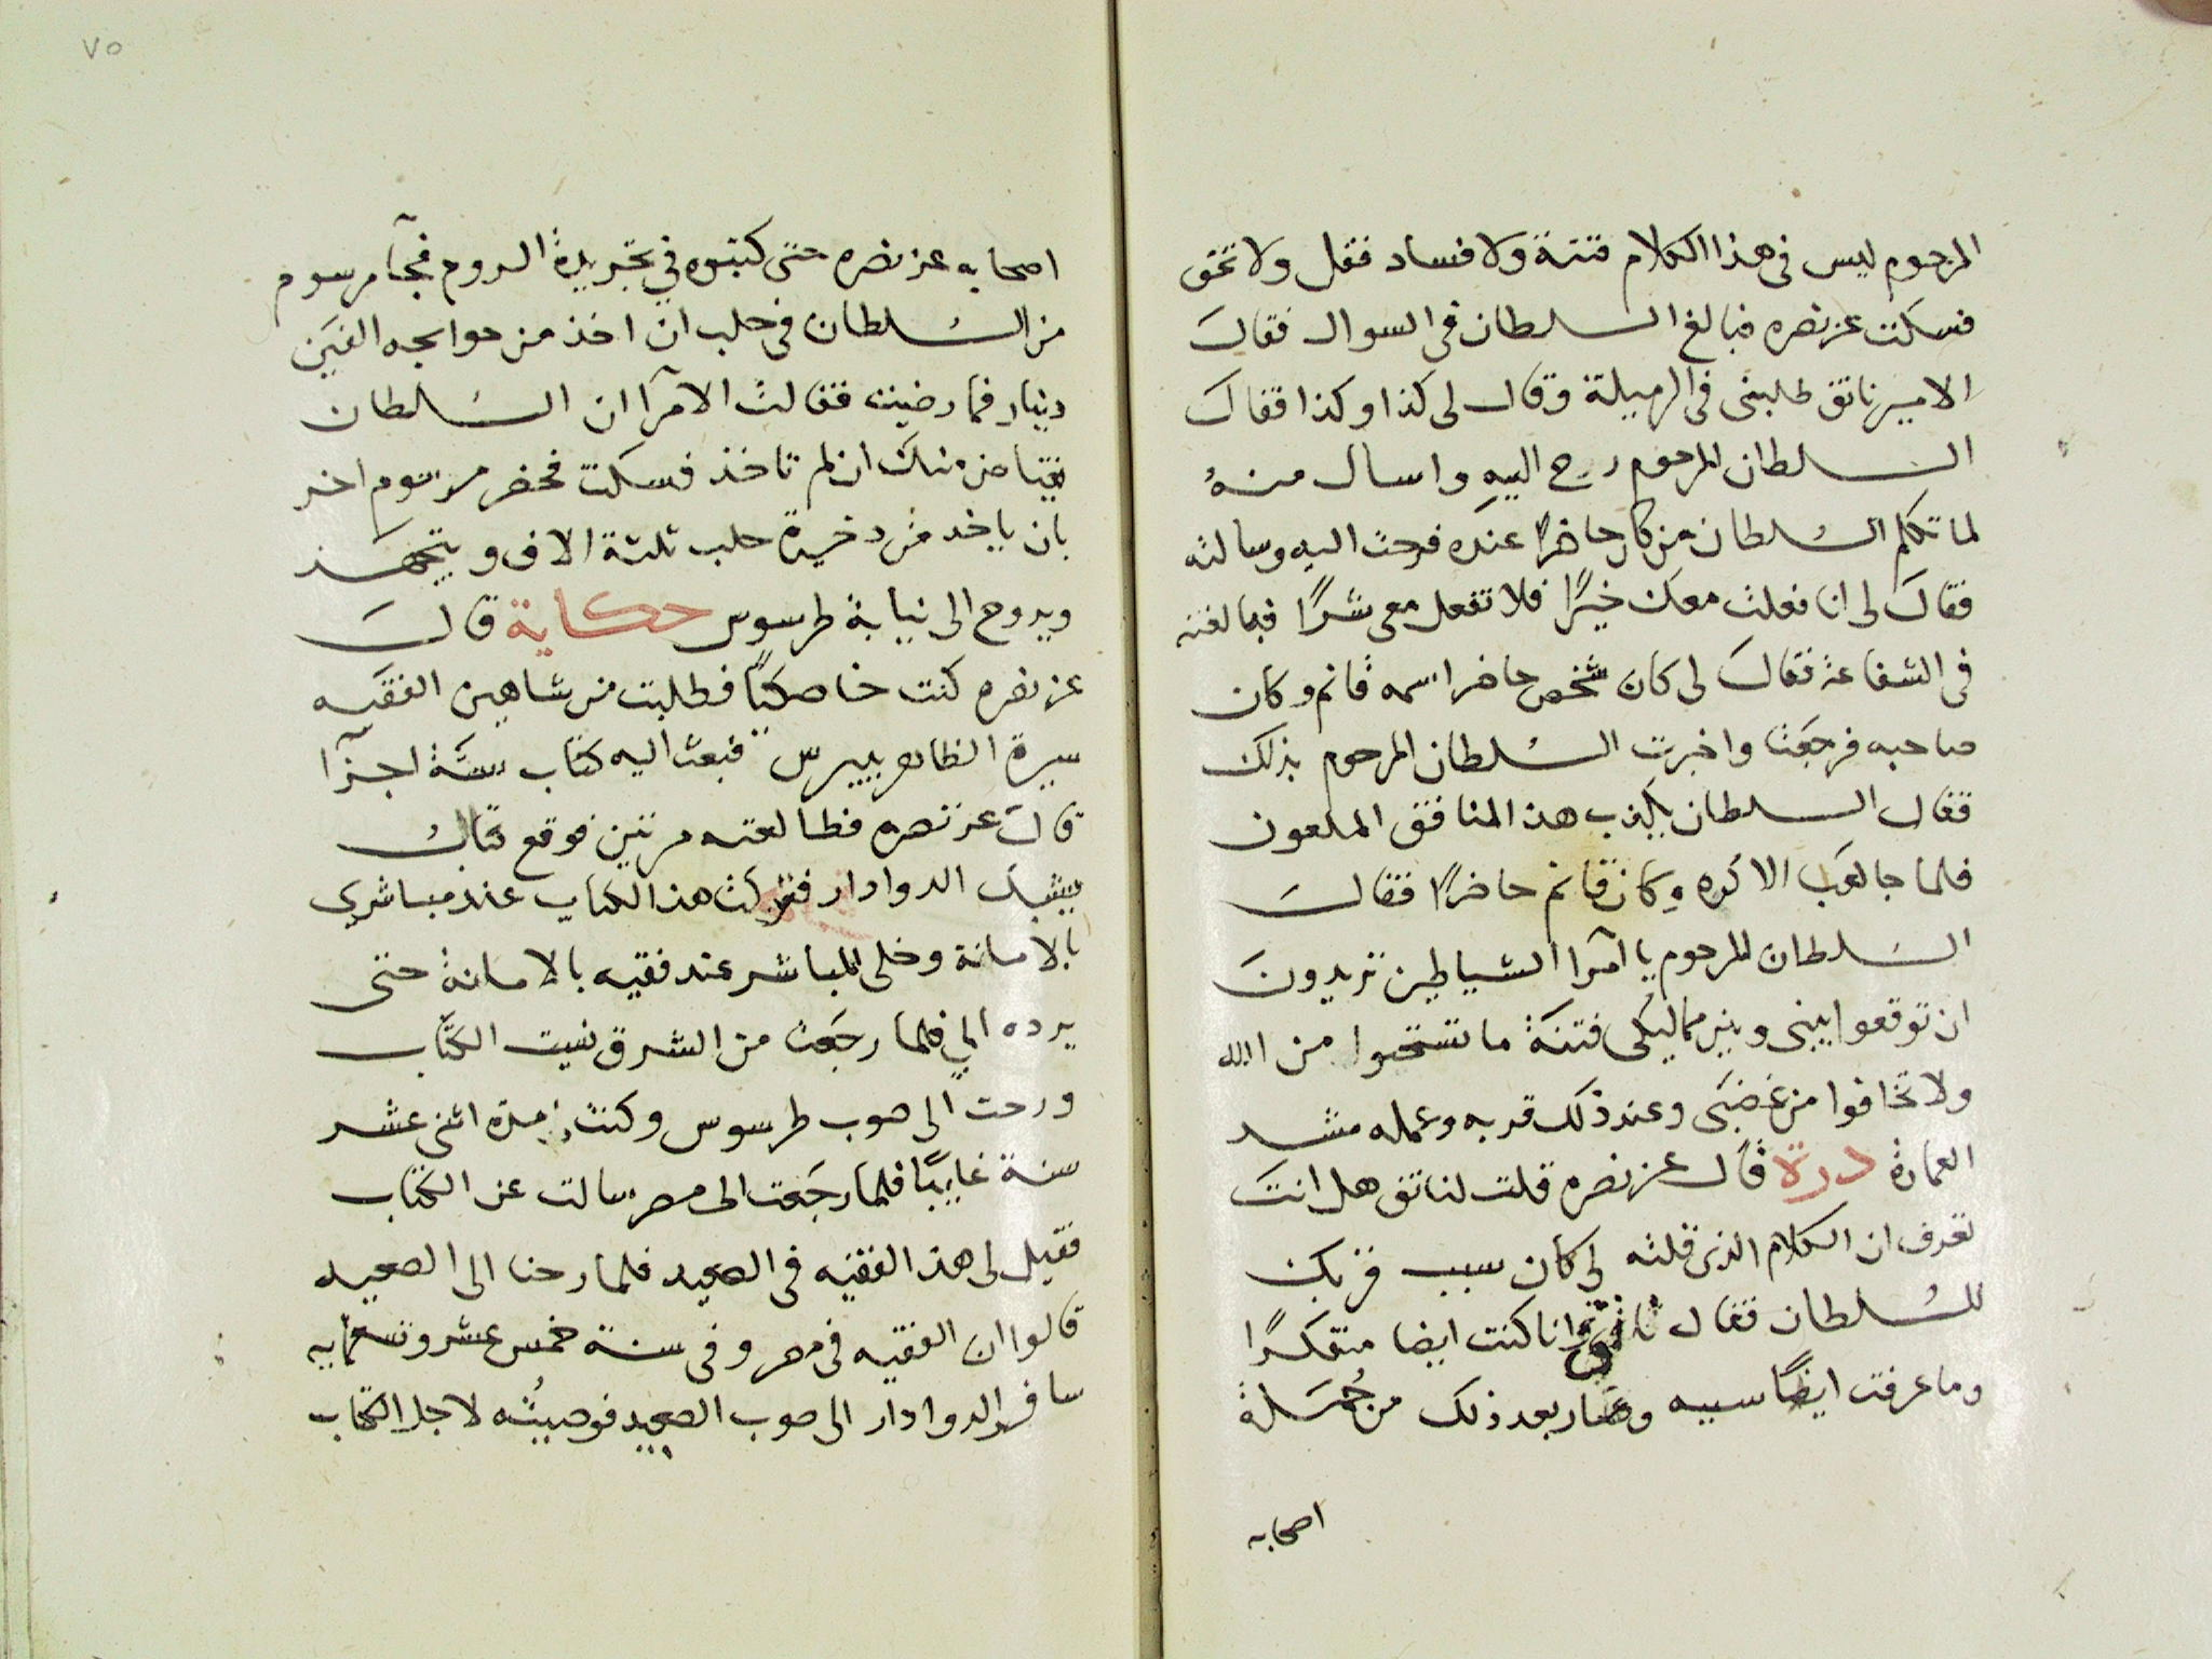 المرحوم ليس فى هذا الكلام فتنة ولا فساد فقل ولا تخف
فسكت عز نصره فبالغ السلطان فى السوال فقال
الامير ناتق طلبنى فى الرميلة وقال لى كذا وكذا فقال
السلطان المرحوم رح اليه واسال منه
لما تكلم السلطان من كان حاضرًا عنده فرحت اليه وسالته
فقال لى انا فعلت معك خيرًا فلا تفعل معى شرًا فبالغته
فى الشفاعة فقال لى كان شخص حاضر اسمه قانم وكان
صاحبه فرجعت واخبرت السلطان المرحوم بذلك
فقال السلطان يكذب هذا المنافق الملعون
فلما جا لعب الاكره وكان قانم حاضرًا فقال
السلطان المرحوم يا امرآ الشياطين تريدون
ان توقعوا بينى وبين مماليكى فتنة ما تستحوا من الله
ولا تخافوا من غضبى وعند ذلك قربه وعمله مشد
العمارة درة قال عز نصره قلت لناتق هل انت
تعرف ان الكلام الذى قلته لى كان سبب قربك
للسلطان فقال ناتق وانا كنت ايضا متفكرًا
وما عرفت ايضًا سببه وصار بعد ذلك من جملة
اصحابه
٧٥
اصحابه عز نصره حتى كتبوه في تجريدة الروم فجآ مرسوم
من السلطان فى حلب ان اخذ من حوايجه الفين
دينار فما رضيت فقالت الامرآ ان السلطان
منك ان لم تاخذ فسكت فحضر مرسوم اخر
بان ياخد من دخيرة حلب ثلثة الاف و
ويروح الى نيابة طرسوس حكاية قال
عز نصره كنت خاصكيًا فطلبت من شاهين الفقيه
سيرة الظاهر بيبرس فبعث اليه كتاب ستة اجزآ
قال عز نصره فطالعته مرتين فوقع قتال
يشبك الدوادار فتركت هذا الكتاب عند مباشرى
بالامانة وخلى المباشر عند فقيه بالامانة حتى
يرده الي فلما رجعت من الشرق نسيت الكتاب
ورحت الى صوب طرسوس وكنت مدة اثنى عشر
سنة غايبًا فلما رجعت الى مصر سالت عن الكتاب
فقيل لى هذا الفقيه فى الصعيد فلما رحنا الى الصعيد
قالوا ان الفقيه فى مصر وفى سنة خمس عشر وتسعمايه
سافر الدوادار الى صوب الصعيد فوصيته لاجل الكتاب